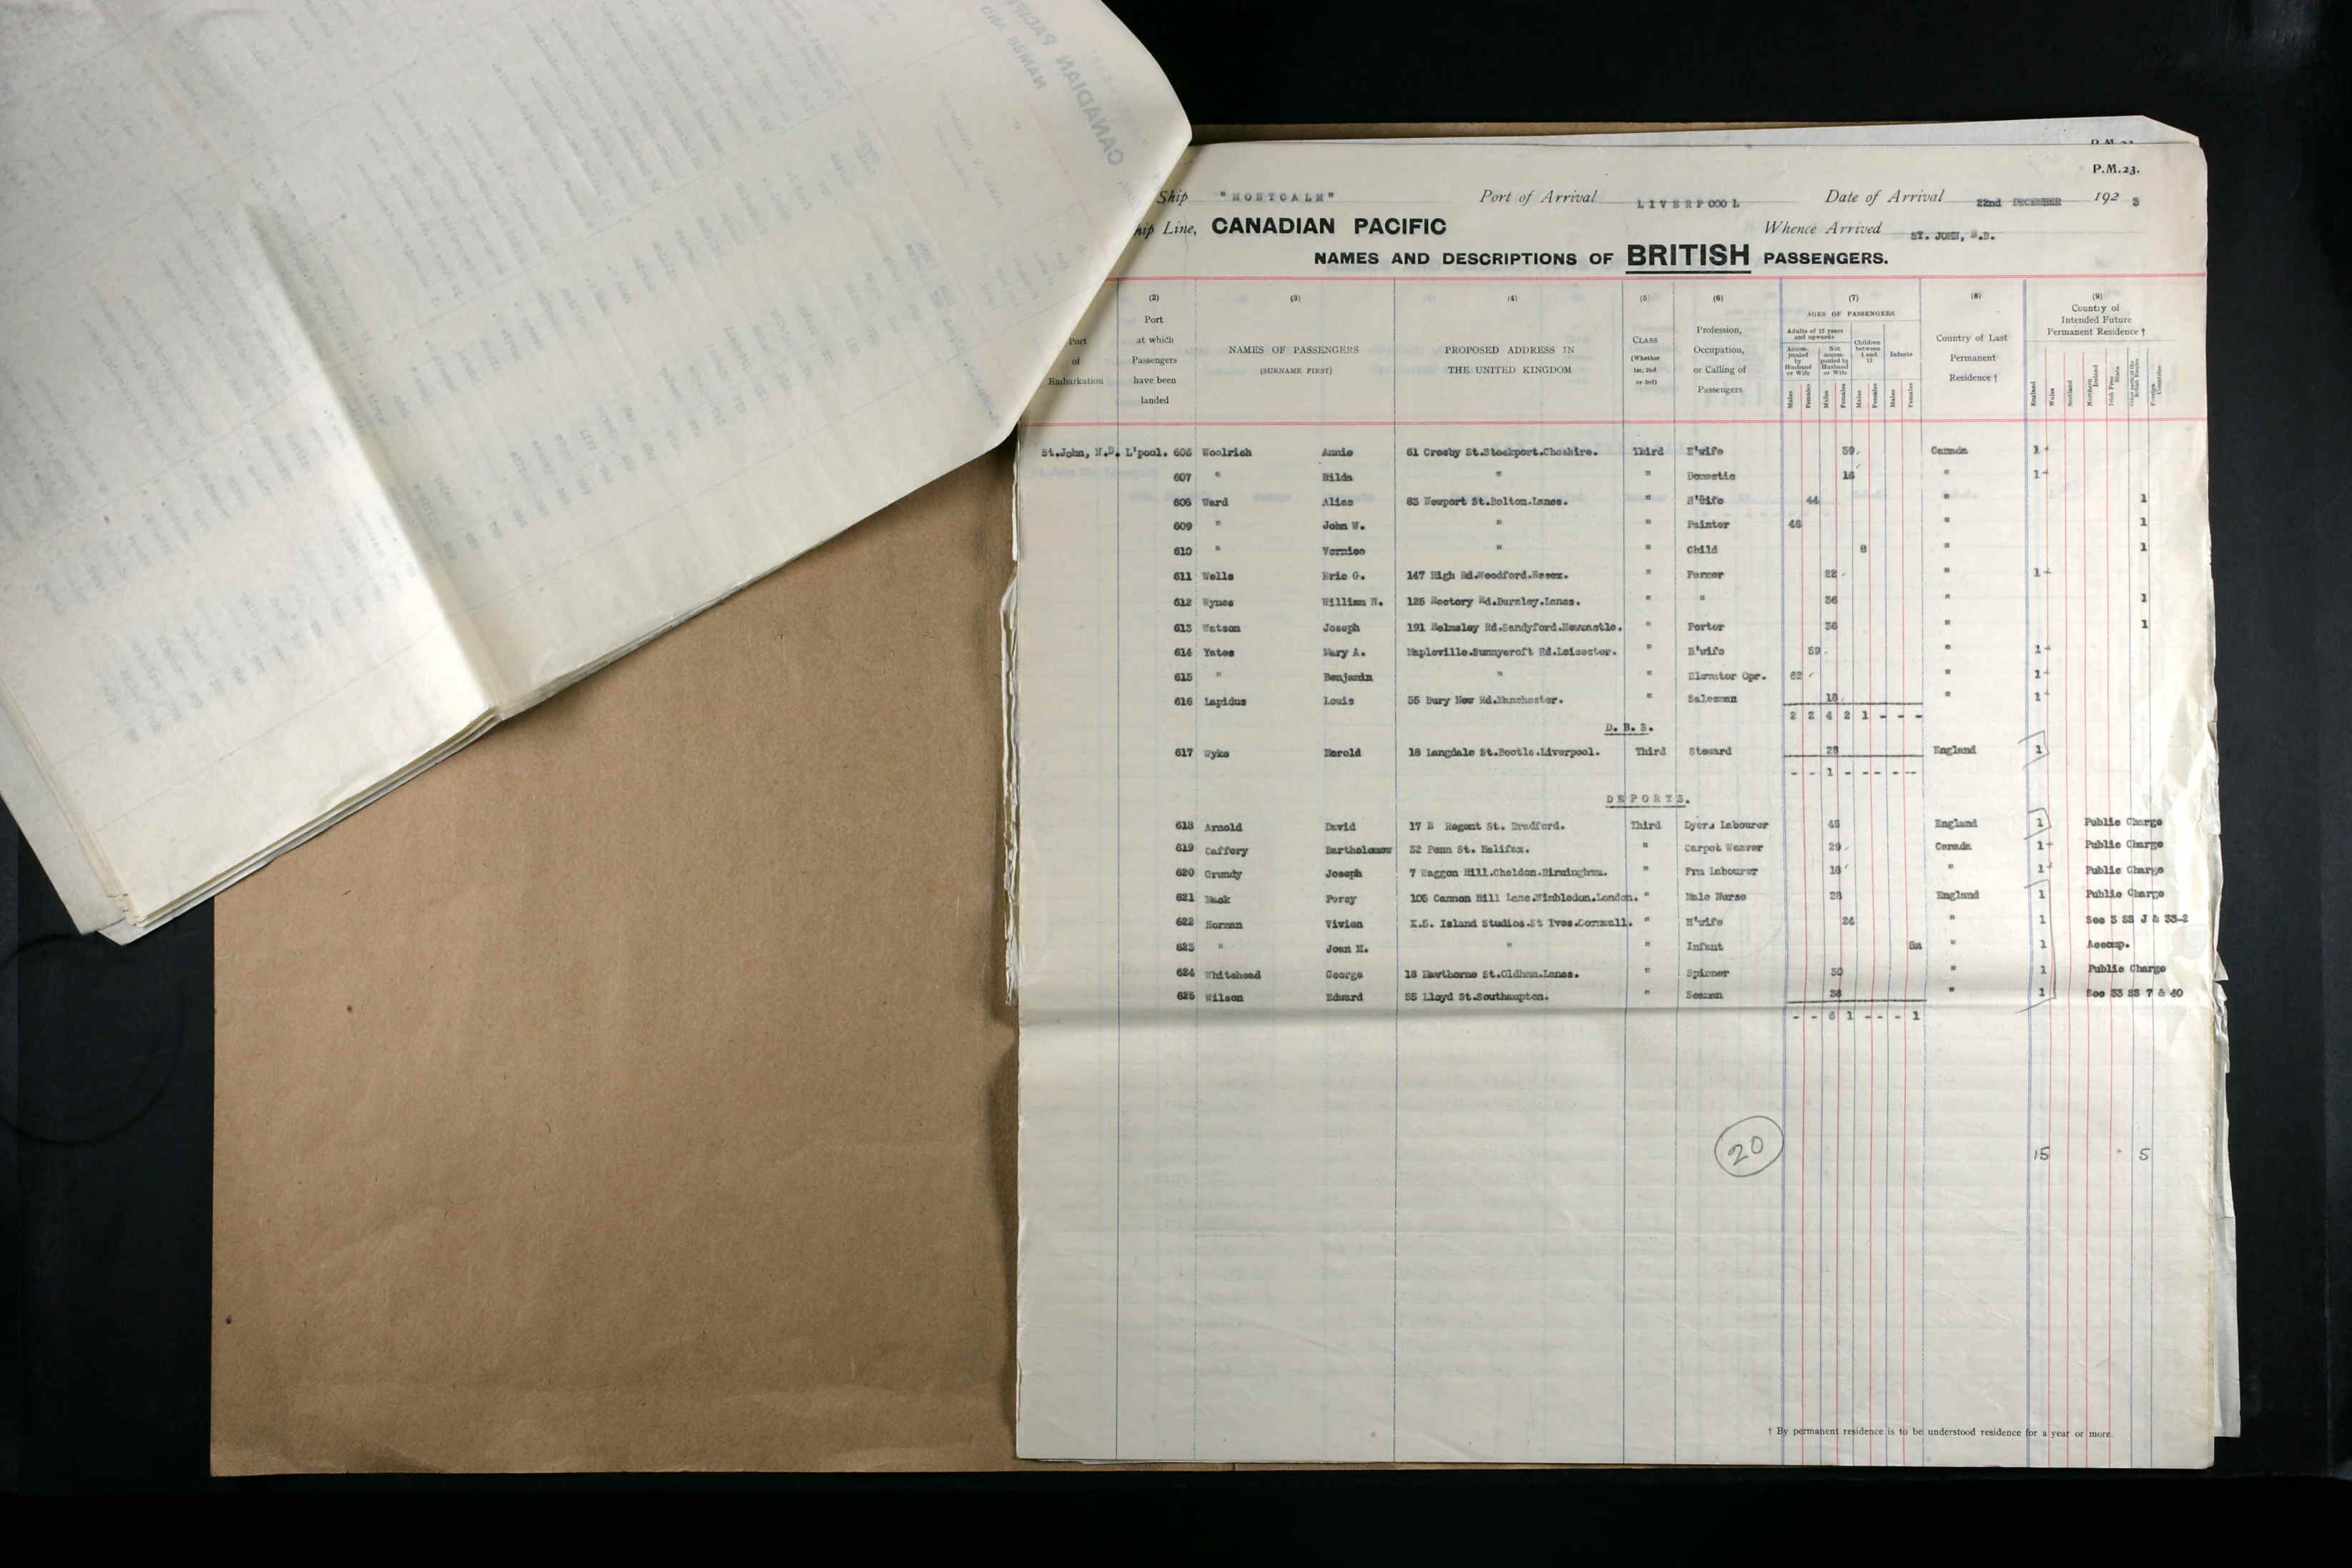 P.M.23.
Ship "MONTCALM" Port of Arrival LIVERPOOL Date of Arrival 22nd DECEMBER 192 3
hip Line, CANADIAN PACIFIC Whence Arrived ST. JOHN, N.B.
NAMES AND DESCRIPTIONS OF BRITISH PASSENGERS.
Port of Embarkation
(2) Port at which Passengers have been landed
(3) NAMES OF PASSENGERS (SURNAME FIRST)
(4) PROPOSED ADDRESS IN THE UNITED KINGDOM
(5) CLASS (Whether 1st, 2nd or 3rd)
(6) Profession, Occupation, or Calling of Passengers
(7) AGES OF PASSENGERS
Adults of 12 years and upwards
Accompanied by Husband or Wife
Not accompanied by Husband or Wife
Children between 1 and 12
Infants
Males Females Males Females Males Females Males Females
(8) Country of Last Permanent Residence †
(9) Country of Intended Future Permanent Residence †
England Wales Scotland Northern Ireland Irish Free State Other parts of the British Empire Foreign Countries
St.John, N.B. L'pool. 606 Woolrich Annie 61 Crosby St.Stockport.Cheshire. Third H'wife 59 Canada 1
607 " Hilda " " Domestic 16 " 1
608 Ward Alice 83 Newport St.Bolton.Lancs. " H'wife 44 " 1
609 " John W. " " Painter 46 " 1
610 " Vernice " " Child 8 " 1
611 Wells Eric G. 147 High Rd.Woodford.Essex. " Farmer 22 " 1
612 Wynes William N. 125 Rectory Rd.Burnley.Lancs. " " 36 " 1
613 Watson Joseph 191 Helmsley Rd.Sandyford.Newcastle. " Porter 36 " 1
614 Yates Mary A. Mapleville.Sunnycroft Rd.Leicester. " H'wife 59 " 1
615 " Benjamin " " Elevator Opr. 62 " 1
616 Lapidus Louis 55 Bury New Rd.Manchester. " Salesman 18 " 1
2 2 4 2 1 - - -
D. B. S.
617 Wyke Harold 18 Langdale St.Bootle.Liverpool. Third Steward 28 England 1
- - 1 - - - - -
DEPORTS.
618 Arnold David 17 B Regent St. Bradford. Third Dyers Labourer 45 England 1 Public Charge
619 Caffery Bartholomew 32 Penn St. Halifax. " Carpet Weaver 29 Canada 1 Public Charge
620 Grundy Joseph 7 Waggon Hill.Cheldon.Birmingham. " Frm Labourer 18 " 1 Public Charge
621 Mack Percy 105 Cannon Hill Lane.Wimbledon.London. " Male Nurse 28 England 1 Public Charge
622 Norman Vivien K.5. Island Studios.St Ives.Cornwall. " H'wife 24 " 1 Sec 3 SS J & 33-2
623 " Joan M. " " Infant 5m " 1 Accomp.
624 Whitehead George 18 Hawthorne St.Oldham.Lancs. " Spinner 30 " 1 Public Charge
625 Wilson Edward 55 Lloyd St.Southampton. " Seaman 36 " 1 Sec 33 SS 7 & 40
- - 6 1 - - - 1
20 15 5
† By permanent residence is to be understood residence for a year or more.